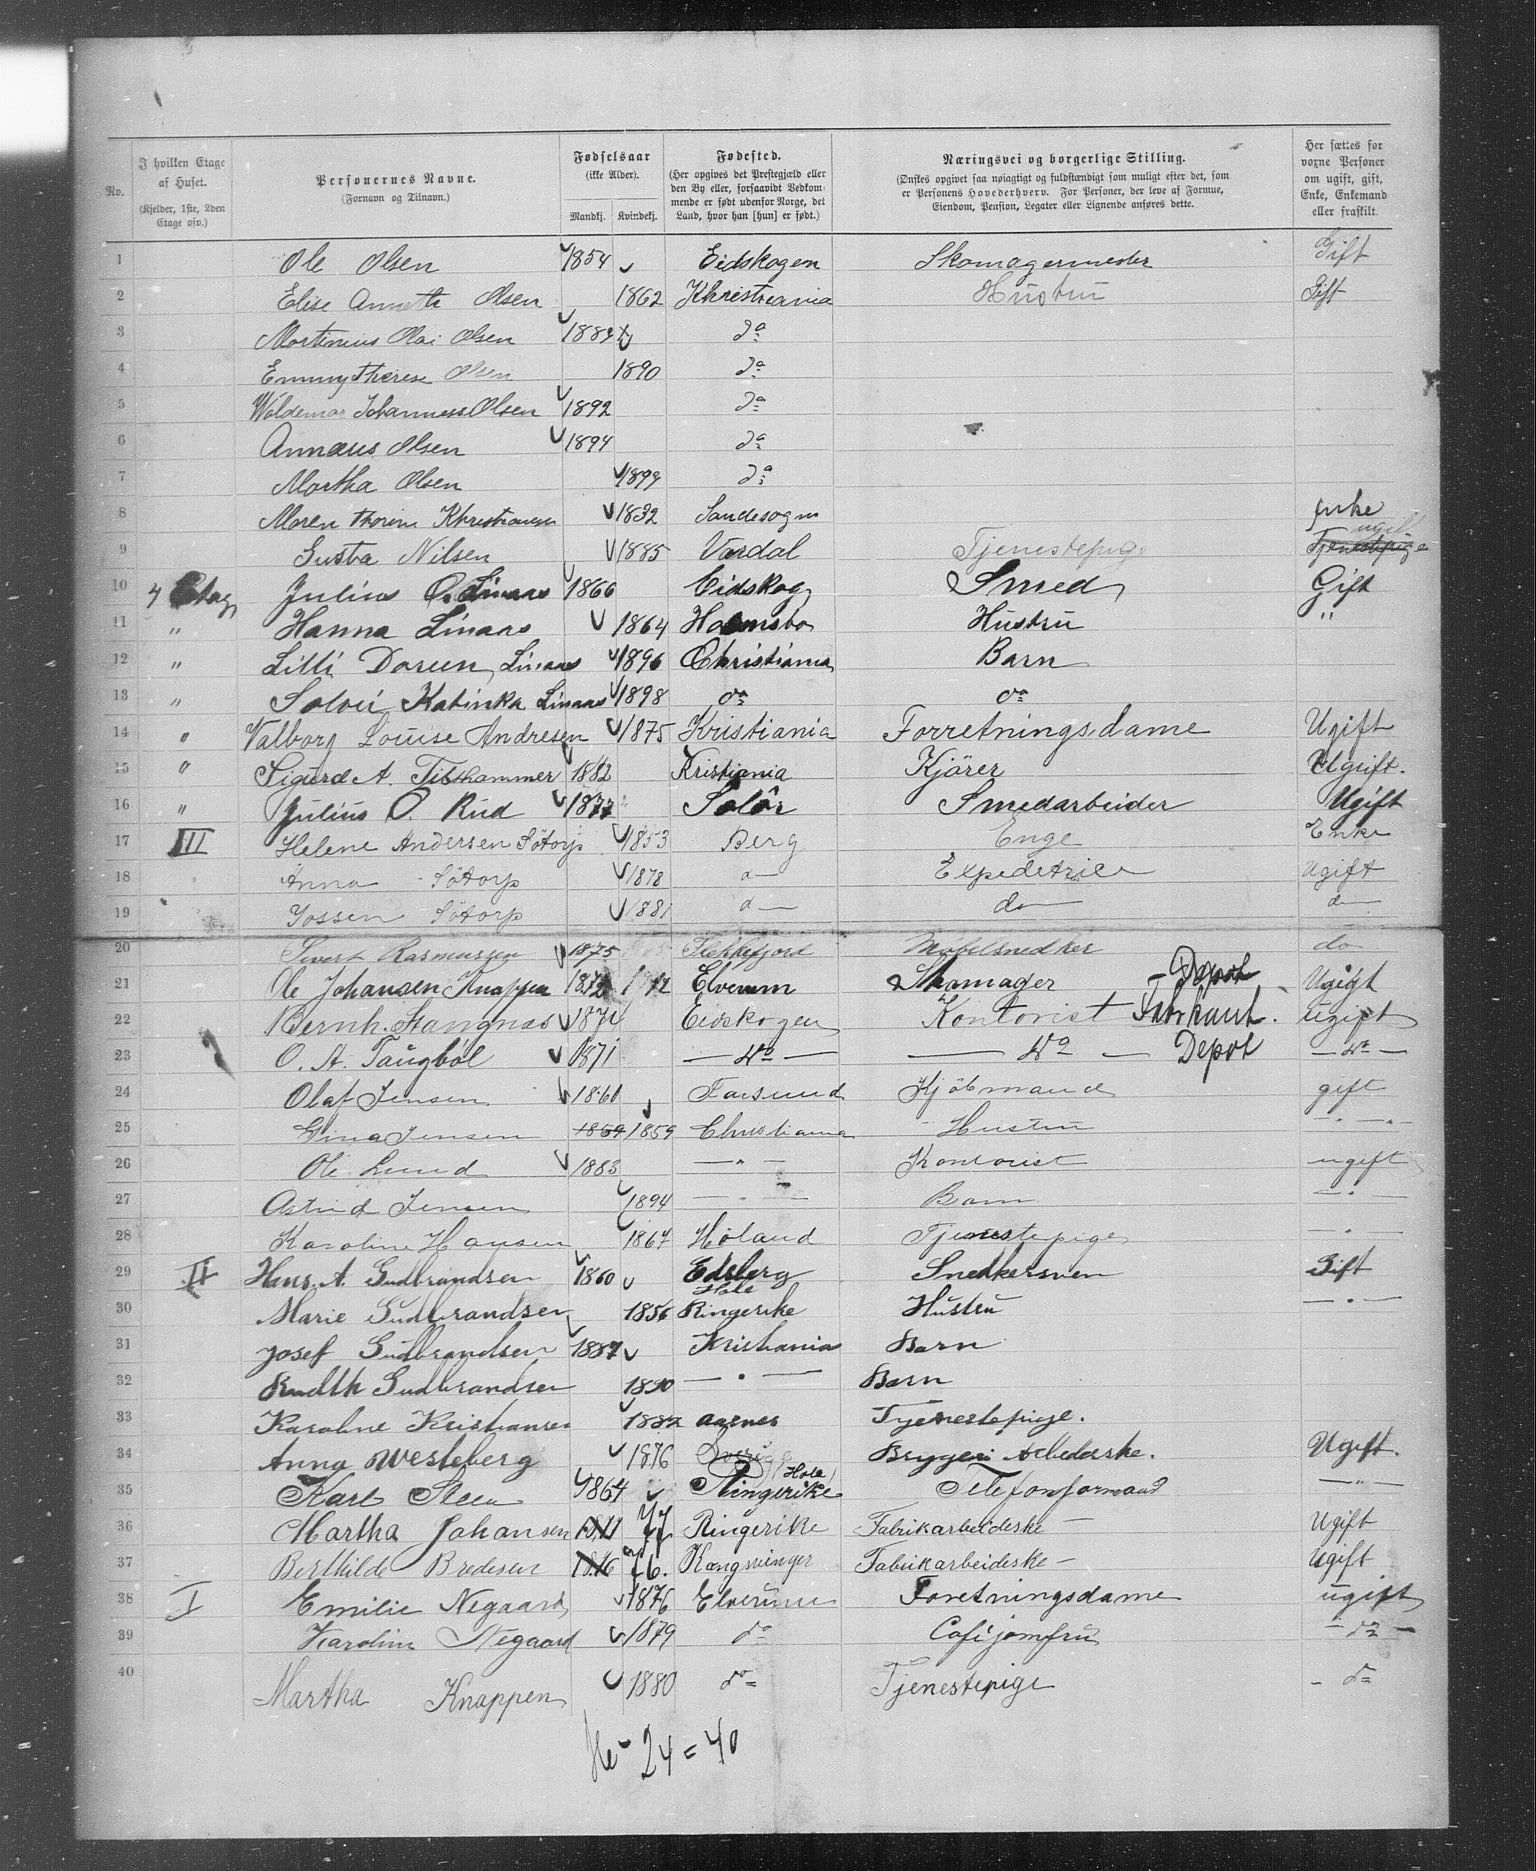 No.
I hvilken Etage af Huset. (Kjelder, 1ste, 2den Etage osv.)
Personernes Navne. (Fornavn og Tilnavn.)
Fødselsaar (ikke Alder). Mandkj. Kvindekj.
Fødested. (Her opgives det Prestegjæld eller den By eller, forsaavidt Vedkommende er født udenfor Norge, det Land, hvor han [hun] er født.)
Næringsvei og borgerlige Stilling. (Ønskes opgivet saa nøiagtigt og fuldstændigt som muligt efter det, som er Personens Hovederhverv. For Personer, der leve af Formue, Eiendom, Pension, Legater eller Lignende anføres dette.)
Her sættes for voxne Personer om ugift, gift, Enke, Enkemand eller fraskilt.
1 Ole Olsen 1854 Eidskogen Skomagermester Gift
2 Elise Annette Olsen 1862 Khristiania Hustru Gift
3 Martinius Olai Olsen 1889 do
4 Emmy Therese Olsen 1890 do
5 Waldemar Johanness Olsen 1892 do
6 Annæus Olsen 1894 do
7 Martha Olsen 1899 do
8 Maren Thorine Khristiansen 1832 Sandesogn Enke
9 Gusta Nilsen 1885 Vardal Tjenestepige Tjenestepige ugift
10 4 Etag Julius O. Linaas 1866 Eidskog Smed Gift
11 " Hanna Linaas 1864 Holmsbo Hustru "
12 " Lilli Doreen Linaas 1896 Christiania Barn
13 " Solvei Katinka Linaas 1898 do do
14 " Valborg Louise Andresen 1875 Kristiania Forretningsdame Ugift
15 " Sigurd A. Tilthammer 1882 Kristiania Kjörer Ugift.
16 " Julius O. Rud 1877 Solör Smedarbeider Ugift
17 III Helene Andersen Sötorp 1853 Berg Enge Enke
18 Anna Sötorp 1878 d Expeditrice Ugift
19 Jossen Sötorp 1881 d do d
20 Sivert Rasmussen 1875 Flekkefjord Møbelsnedker do
21 Ole Johansen Knappen 1872 Elverum Skomager - Depot Ugigt
22 Bernh. Stangnæs 1874 Eidskogen Kontorist Ugift
23 O. A. Taugböl 1871 do do Depot do
24 Olaf Jensen 1860 Farsund Kjöbmand gift
25 Gina Jensen 1859 1859 Christiania Hustru "
26 Ole Lund 1883 " Kontorist ugift
27 Astrid Jensen 1894 " Barn "
28 Karoline Hansen 1867 Höland Tjenestepige "
29 II Hans. A. Gudbrandsen 1860 Edsberg Snedkersven Gift
30 Marie Gudbrandsen 1856 Hole Ringerike Hustru "
31 Josef Gudbrandsen 1887 Kristiania Barn
32 Gudbrandsen 1890 " Barn
33 Karoline Kristiansen 1882 aarnes Tjenestepige.
34 Anna Westeberg 1876 Bryggeri Arbederske. Ugift.
35 Karl Steen 1864 Ringerike (Hole) Telefonformand "
36 Martha Johansen 1877 77 Ringerike Fabrikarbeideske Ugift
37 Berthilde Bredesen 1876 76. Kongsvinger Fabrikarbeideske Ugift
38 I Emilie Negaard 1876 Elverum Foretningsdame ugift
39 Karoline Negaard 1879 do Cafejomfru do
40 Martha Knappen 1880 do Tjenestepige do
24 = 40